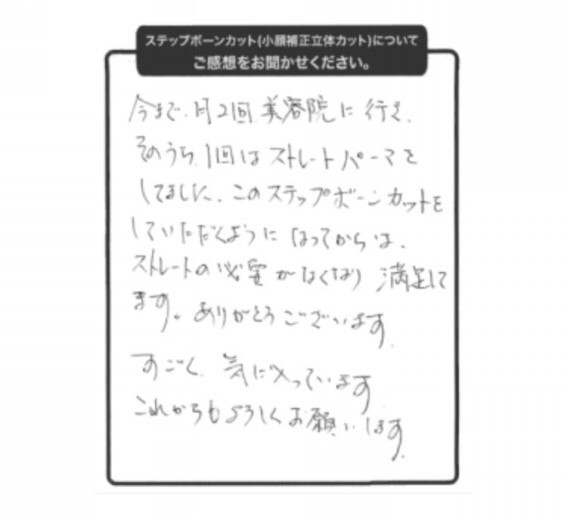 ステップボーンカット(小顔補正立体カット)について
ご感想をお聞かせください。
今まで、月2回美容院に行き、
そのうち、1回はストレートパーマを
してました。このステップボーンカットを
していただくようになってからは、
ストレートの必要がなくなり 満足して
ます。ありがとうございます。
すごく、気に入っています
これからもよろしくお願いします。